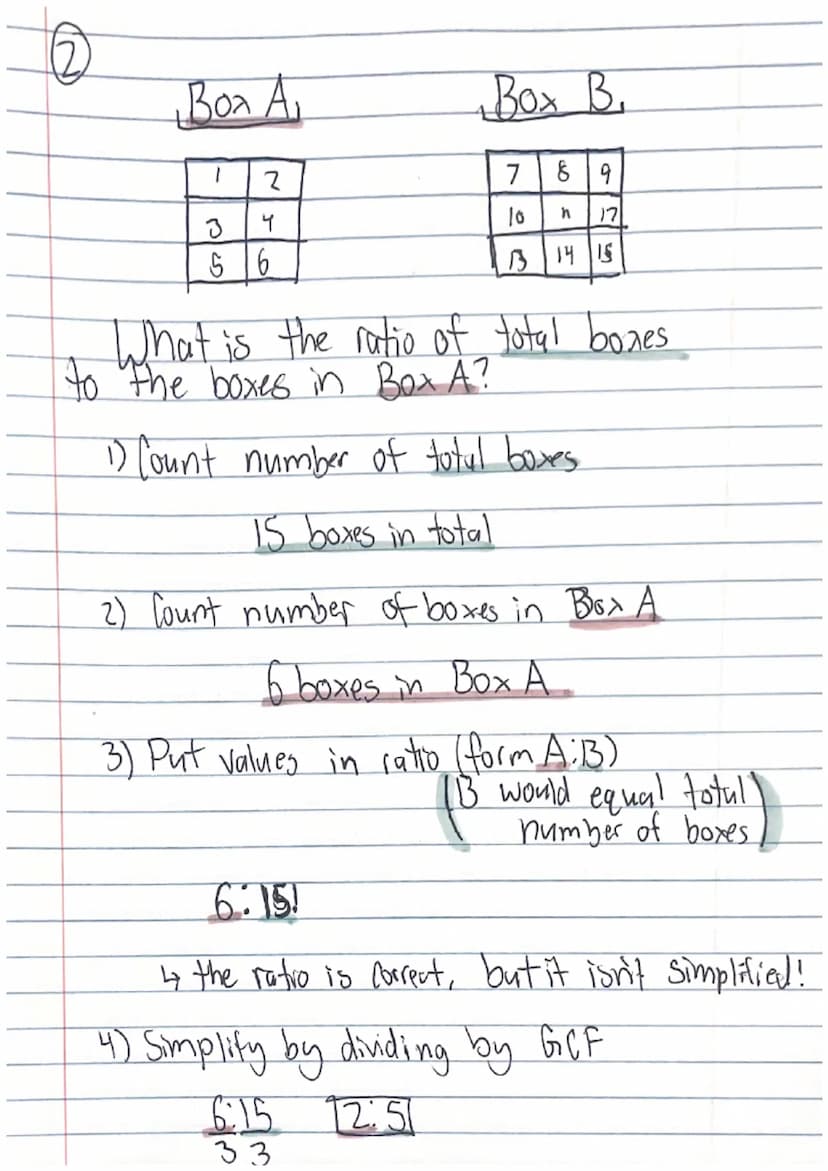 2
Box A Box B
1 2 7 8 9
3 4 10 11 12
5 6 13 14 15
What is the ratio of total boxes
to the boxes in Box A?
1) Count number of total boxes
15 boxes in total
2) Count number of boxes in Box A
6 boxes in Box A
3) Put values in ratio (form A:B)
(B would equal total
number of boxes)
6:15!
↳ the ratio is correct, but it isn't simplified!
4) Simplify by dividing by GCF
6:15 2:5
3 3